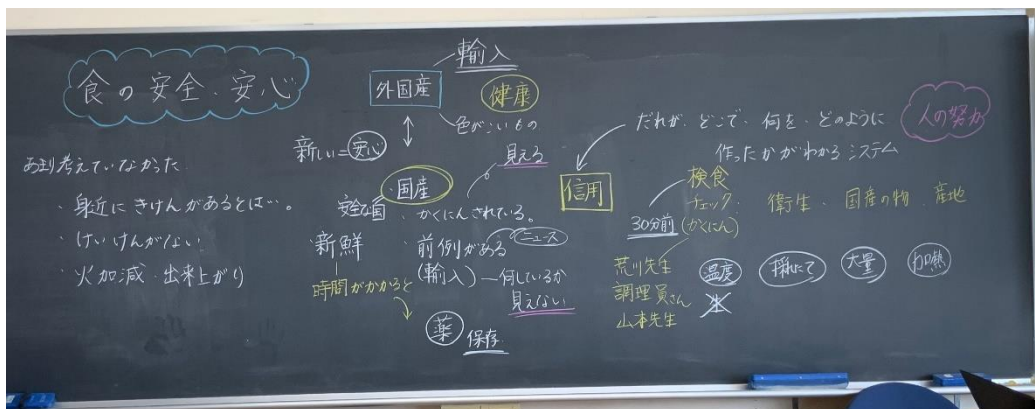 食の安全・安心
あまり考えていなかった
・身近にきけんがあるとは…。
・けいけんがない
・火加減・出来上がり
輸入
外国産
健康
色がこいもの
新しい=安心
見える
国産
安全な国
・かくにんされている。
・新鮮
・前例がある
ニュース
(輸入)―何しているか
見えない
時間がかかると
薬
保存
信用
だれが、どこで、何を、どのように
作ったかがわかるシステム
人の努力
検食
30分前
チェック:
(かくにん)
衛生・国産の物・産地
荒川先生
調理員さん
山本先生
温度
採れたて
大量
加熱
生